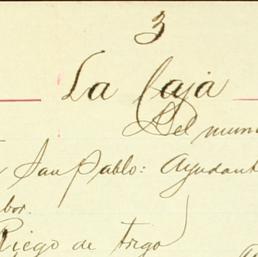 3
La Caja
Del mun
San Pablo: Ayudant
bor.
Riego de trigo